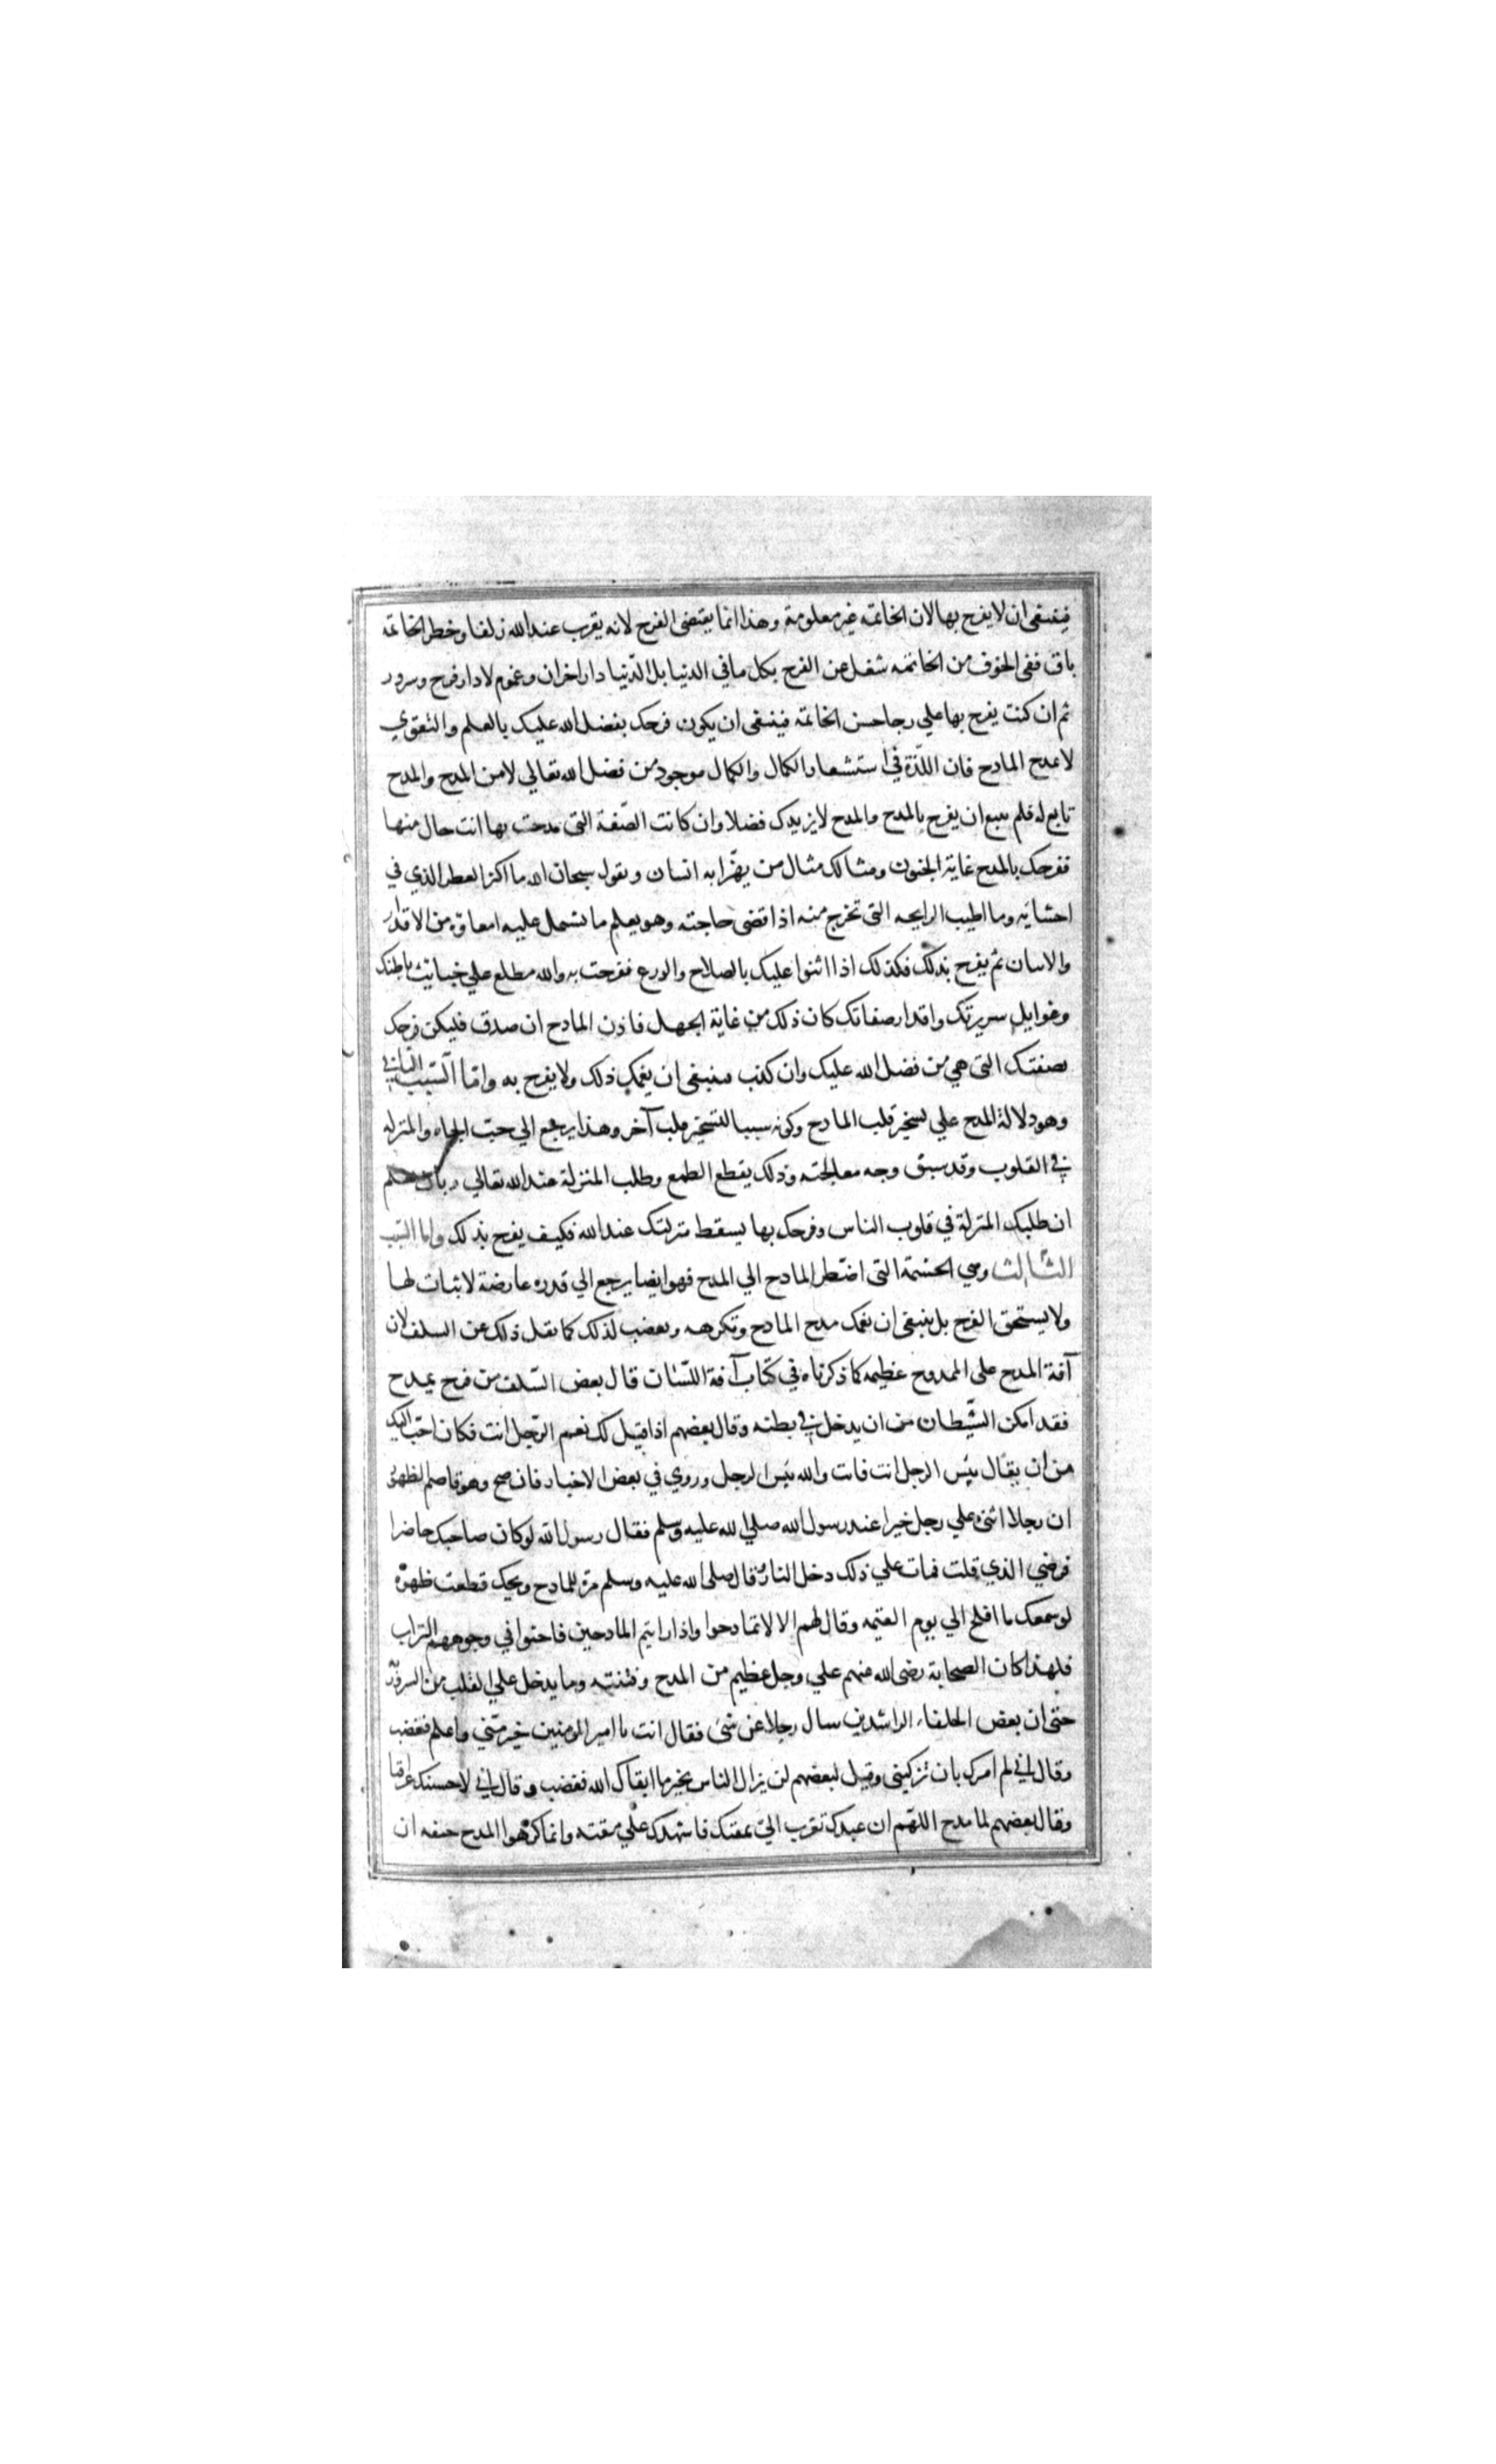 فينبغى ان لا يفرح بها لان الخاتمة غير معلومة وهذا انما يقتضى الفرح لانه يقرب عند الله زلفا وخطر الخاتمه
باق ففى الخوف من الخاتمه شغل عن الفرح بكل ما في الدنيا بل الدّنيا دار احزان وغموم لا دار فرح وسرور
ثم ان كنت يفرح بها علي رجا حسن الخاتمة فينبغى ان يكون فرحك بفضل الله عليك بالعلم والتقوي
لا بمدح المادح فان اللّذة في استشعار الكمال والكمال موجود من فضل الله تعالي لا من المدح والمدح
تابع له فلم ينبغ ان يفرح بالمدح والمدح لا يزيدك فضلا وان كانت الصّفة التى مدحت بها انت خال منها
ففرحك بالمدح غاية الجنون ومثالك مثال من يهزّا به انسان ويقول سبحان الله ما اكثر العطر الذي في
احشايه وما اطيب الرايحه التى تخرج منه اذا قضى حاجته وهو يعلم ما تشمل عليه امعاؤه من الاقذار
والانتان ثم يفرح بذلك فكذلك اذا اثنوا عليك بالصلاح والورع ففرحت به والله مطلع علي خبائث باطنك
وغوايل سريرتك واقذار صفاتك كان ذلك من غاية الجهل فاذن المادح ان صدق فليكن فرحك
بصفتك التى هي من فضل الله عليك وان كذب فينبغى ان يغمك ذلك ولا يفرح به وامّا السّبب الثاني
وهو دلالة المدح علي تسخير قلب المادح وكونه سببا لتسخير قلب آخر وهذا يرجع الي حبّ الجاه والمنزله
في القلوب وقد سبق وجه معالجته وذلك بقطع الطمع وطلب المنزلة عند الله تعالي وبان تعلم
ان طلبك المنزلة في قلوب الناس وفرحك بها يسقط منزلتك عند الله فكيف يفرح بذلك واما السّبب
الثّالث وهي الحشمة التى اضطر المادح الي المدح فهو ايضا يرجع الي قدره عارضة لا ثبات لها
ولا يستحق الفرح بل ينبغى ان يغمك مدح المادح وتكرهه وبغضب لذلك كما نقل ذلك عن السلف لان
آفة المدح على الممدوح عظيمه كما ذكرناه في كتاب آفة اللسان قال بعض السّلف من فرح بمدح
فقد امكن الشّيطان من ان يدخل في بطنه وقال بعضهم اذا قيل لك نعم الرّجل انت فكان احبّ اليك
من ان يقال بئس الرجل انت فانت والله بئس الرجل وروي في بعض الاخبار فان صح وهو قاصم للظهور
ان رجلا اثنى علي رجل خيرا عند رسول الله صلي الله عليه وسلم فقال رسول الله لو كان صاحبك حاضرا
فرضي الذي قلت فمات علي ذلك دخل النار وقال صلى الله عليه وسلم مرّة للمادح ويحك قطعت ظهره
لو سمعك ما افلح الي يوم القيمه وقال لهم الا لا تمادحوا واذا رايتم المادحين فاحثوا في وجوههم التراب
فلهذا كان الصحابة رضى الله عنهم علي وجل عظيم من المدح وفتنته وما يدخل علي القلب من السرور
حتى ان بعض الخلفاء الراشدين سال رجلا عن شئ فقال انت يا امير المومنين خير منّي واعلم فغضب
وقال اني لم امرك بان تزكينى وقيل لبعضهم لن يزال الناس بخير ما ابقاك الله فغضب وقال اني لاحسبك عراقيا
وقال بعضهم لما مدح اللهم ان عبدك تقرب الىّ بمقتك فاشهدك علي مقته وانما كرهوا المدح خيفه ان